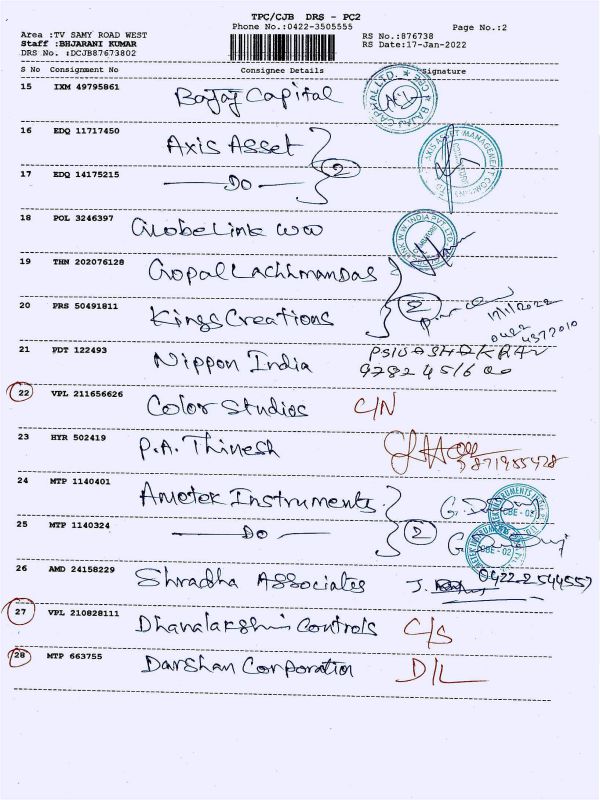 TPC/CJB DRS - PC2
Phone No.:0422-3505555
Page No.:2
Area :TV SAMY ROAD WEST
Staff :BHJARANI KUMAR
DRS No. :DCJB87673802
RS No.:876738
RS Date:17-Jan-2022
S No Consignment No Consignee Details Signature
15 IXM 49795861 Bajaj Capital
BAJAJ CAPITAL LTD.
16 EDQ 11717450 Axis Asset
17 EDQ 14175215 — DO — 2
AXIS ASSET MANAGEMENT COMPANY LTD
18 POL 3246397 Globelink WW
19 THN 202076128 Gopal Lachhmandas
20 PRS 50491811 Kings Creations 2
17/1/2022
0422 4377010
21 PDT 122493 Nippon India
22 VPL 211656626 Color Studios C/N
23 HYR 502419 P.A. Thinesh
24 MTP 1140401 Ametek Instruments
CBE - 02
25 MTP 1140324 — DO — 2
CBE - 02
26 AMD 24158229 Shradha Associates J. 0422-2544557
27 VPL 210828111 Dhanalakshmi Controls C/S
28 MTP 663755 Darshan Corporation D/L